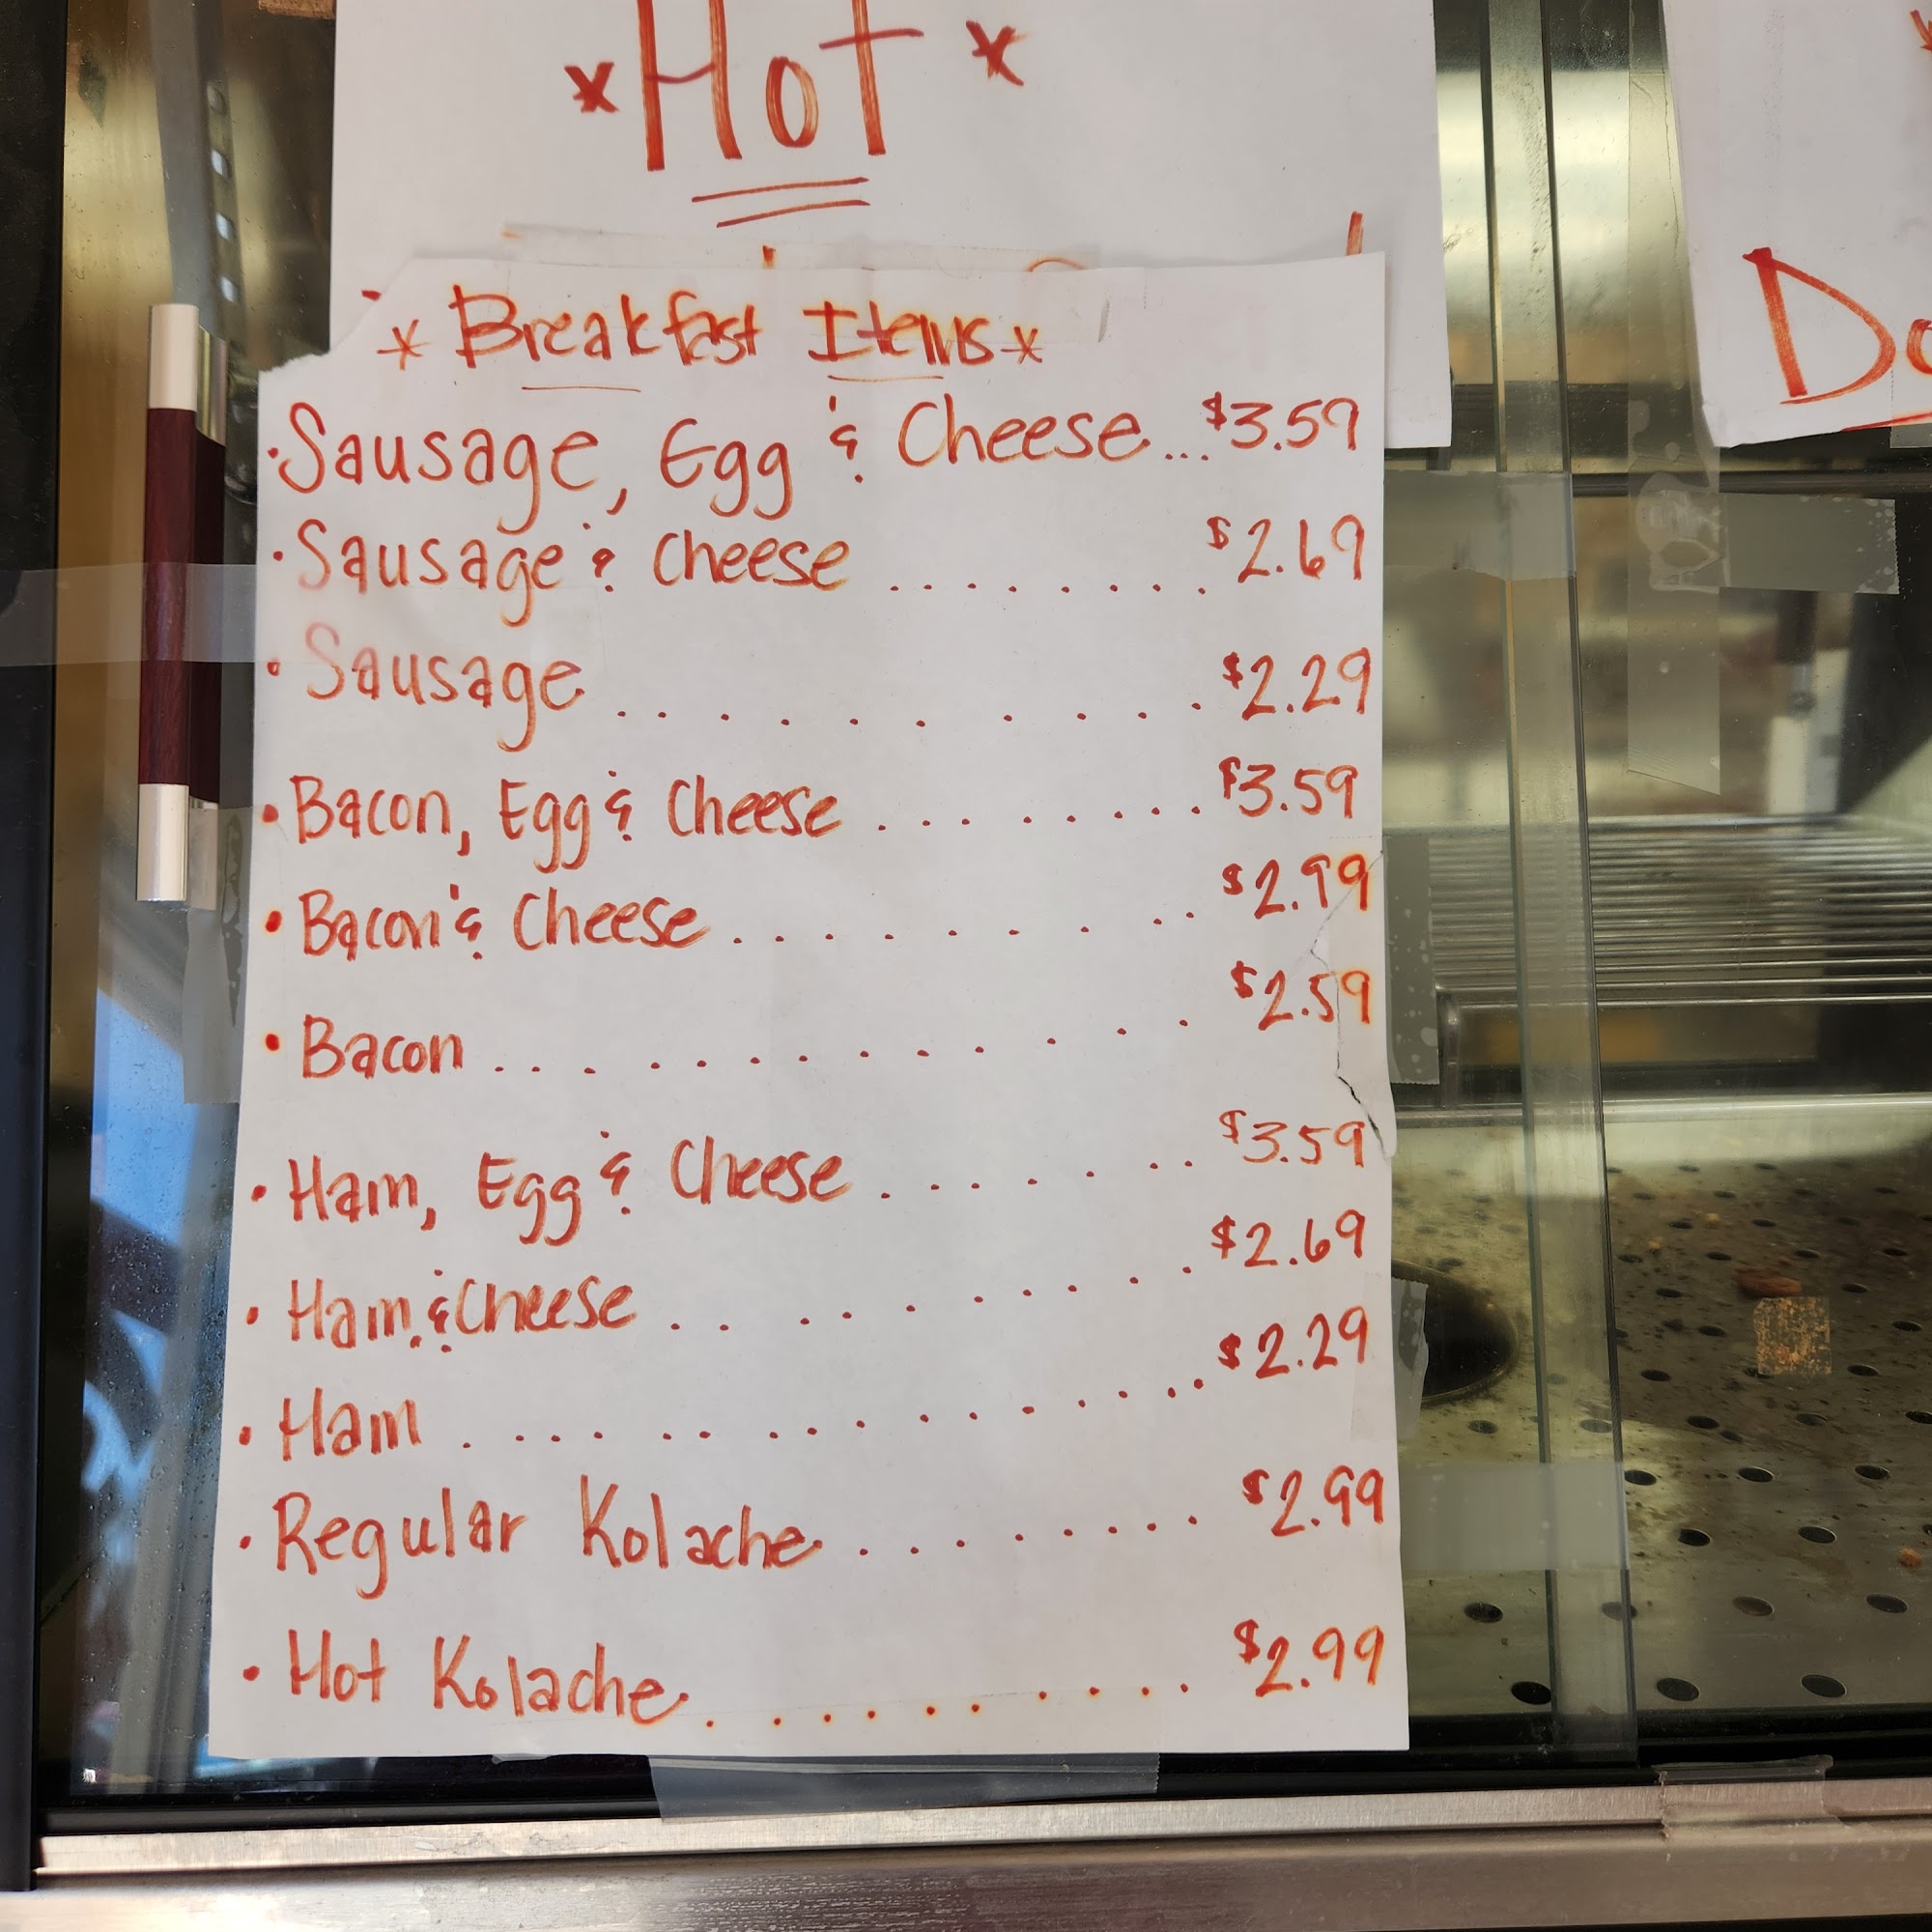 * Hot *
* Breakfast Items *
· Sausage, Egg & Cheese...$3.59
· Sausage & Cheese ........ $2.69
· Sausage .......... $2.29
· Bacon, Egg & Cheese ........ $3.59
· Bacon & Cheese ......... $2.99
· Bacon ............ $2.59
· Ham, Egg & Cheese ....... $3.59
· Ham & Cheese ......... $2.69
· Ham .............. $2.29
· Regular Kolache ........ $2.99
· Hot Kolache .......... $2.99